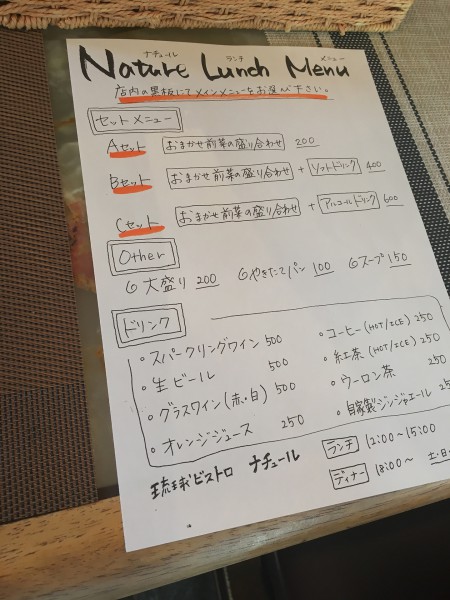 ナチュール ランチ メニュー
Nature Lunch Menu
店内の黒板にてメインメニューをお選び下さい。
セットメニュー
Aセット おまかせ前菜の盛り合わせ 200
Bセット おまかせ前菜の盛り合わせ + ソフトドリンク 400
Cセット おまかせ前菜の盛り合わせ + アルコールドリンク 600
Other
大盛り 200 やきたてパン 100 スープ 150
ドリンク
・スパークリングワイン 500
・生ビール 500
・グラスワイン(赤・白) 500
・オレンジジュース 250
・コーヒー(HOT/ICE) 250
・紅茶(HOT/ICE) 250
・ウーロン茶 250
・自家製ジンジャエール 250
琉球ビストロ ナチュール
ランチ 12:00〜15:00
ディナー 18:00〜 土・日